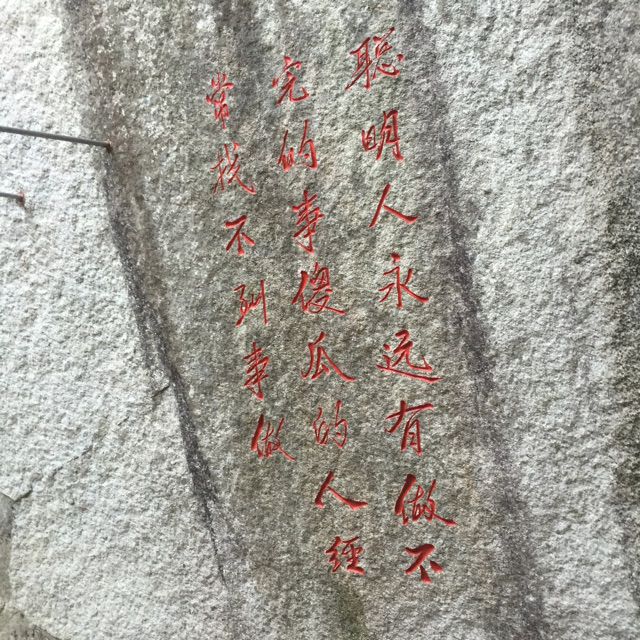 聪明人永远有做不
完的事傻瓜的人经
常找不到事做